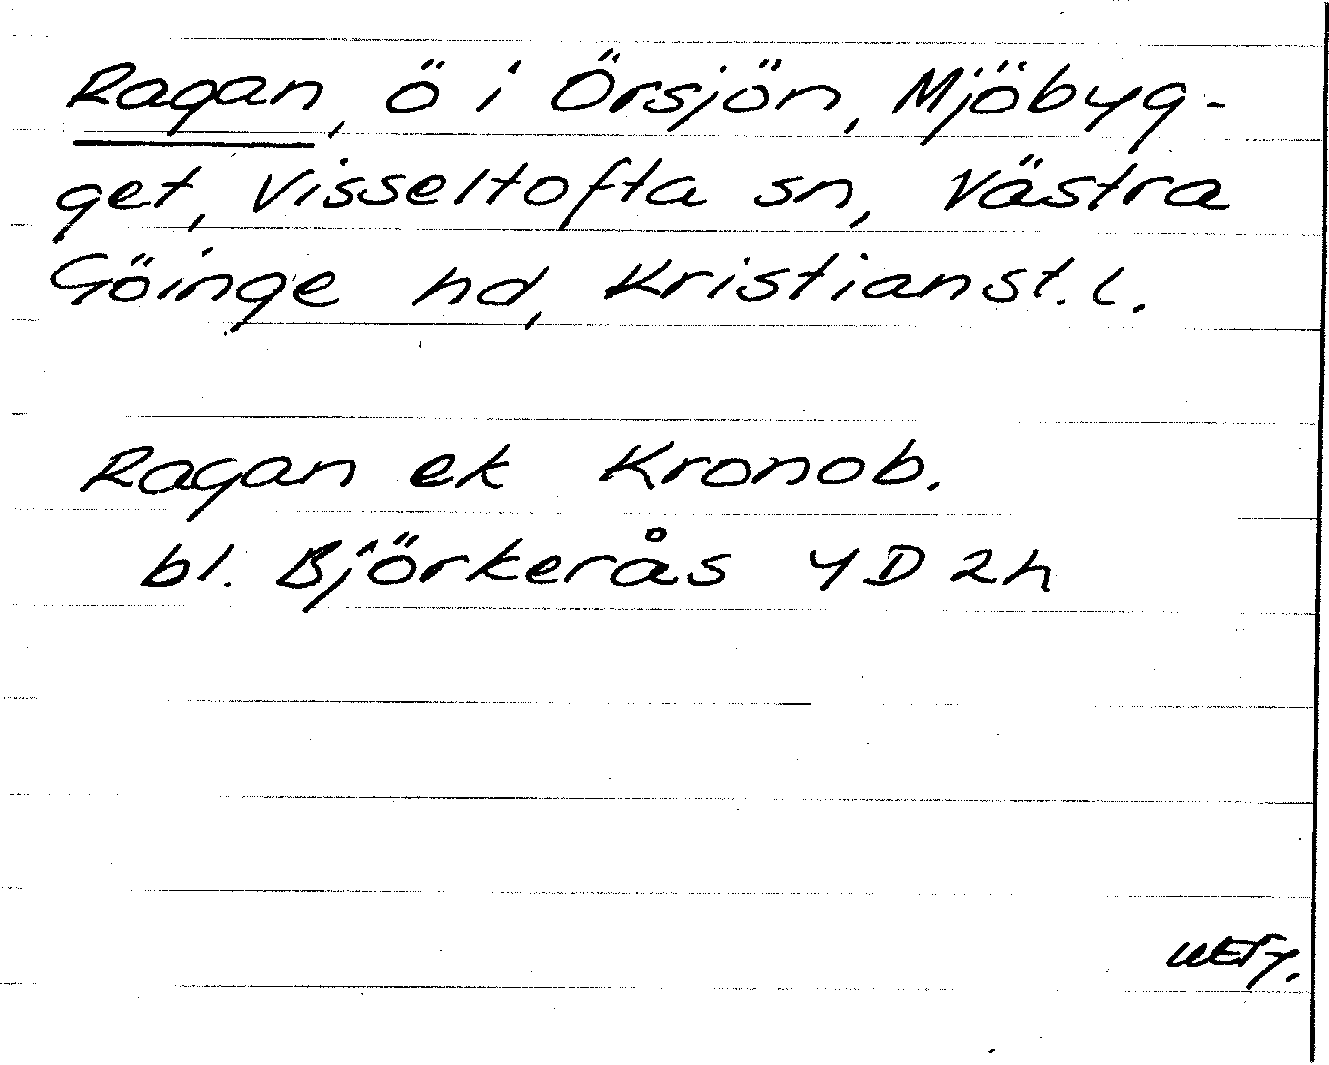 Ragan, ö i Örsjön, Mjöbyg-
get, Visseltofta sn, Västra
Göinge hd, Kristianst. l.
Ragan ek Kronob.
bl. Björkerås 4D 2h